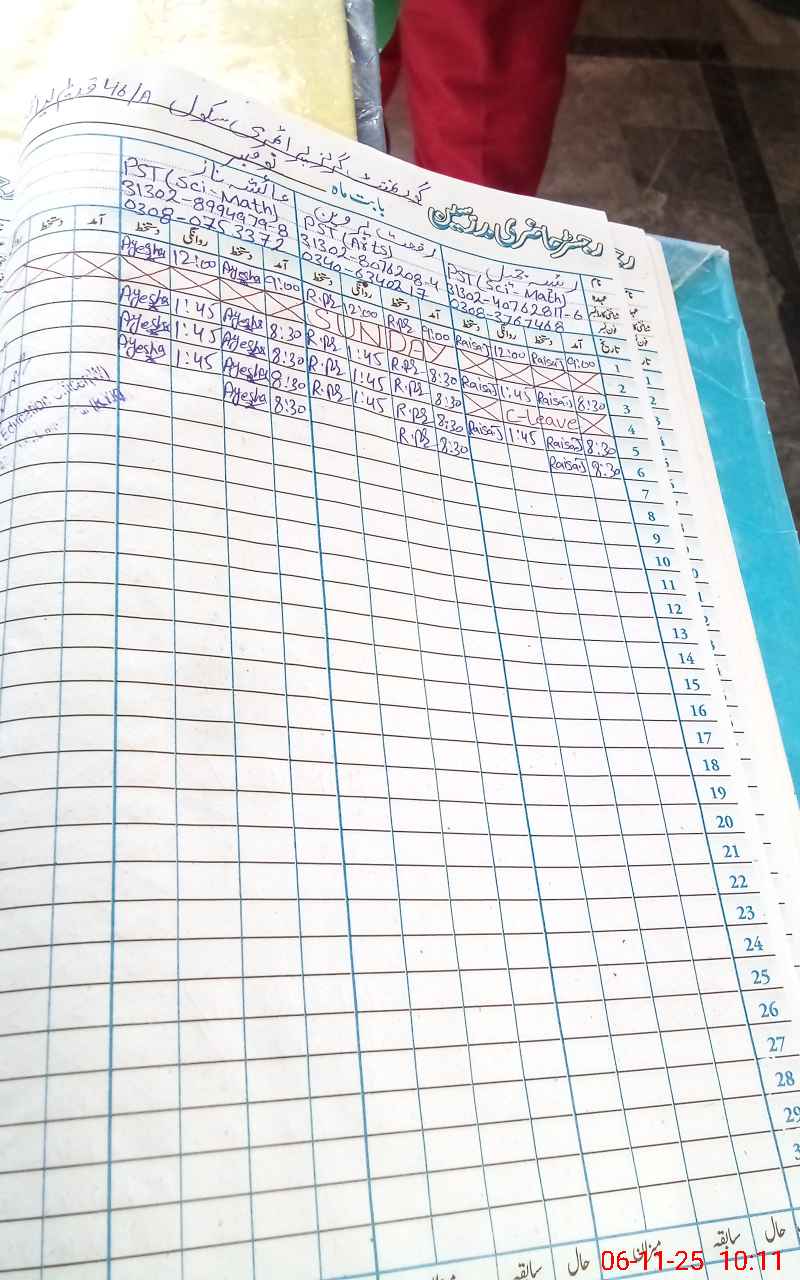 گورنمنٹ گرلز پرائمری سکول 46/A
رجسٹر حاضری مدرسین
بابت ماہ نومبر
نام
عہدہ
عائشہ ناز
PST (Sci-Math)
31302-8994979-8
0308-0753372
رفعت پروین
PST (Arts)
31302-8076208-4
PST (Sci-Math)
31302-4076281-6
0308-3767468
تاریخ آمد دستخط روانگی دستخط آمد دستخط روانگی دستخط آمد دستخط روانگی دستخط آمد دستخط
1 9:00 Raisa 12:00 Raisa 9:00 R.ps 12:00 R.ps 9:00 Ayesha 12:00 Ayesha
2 SUNDAY
3 8:30 Raisa 1:45 Raisa 8:30 R.ps 1:45 R.ps 8:30 Ayesha 1:45 Ayesha
4 C-Leave 8:30 R.ps 1:45 R.ps 8:30 Ayesha 1:45 Ayesha
5 8:30 Raisa 1:45 Raisa 8:30 R.ps 1:45 R.ps 8:30 Ayesha 1:45 Ayesha
6 8:30 Raisa 8:30 R.ps 8:30 Ayesha
7
8
9
10
11
12
13
14
15
16
17
18
19
20
21
22
23
24
25
26
27
28
29
حال سابقہ میزان حال سابقہ
Education
06-11-25 10:11